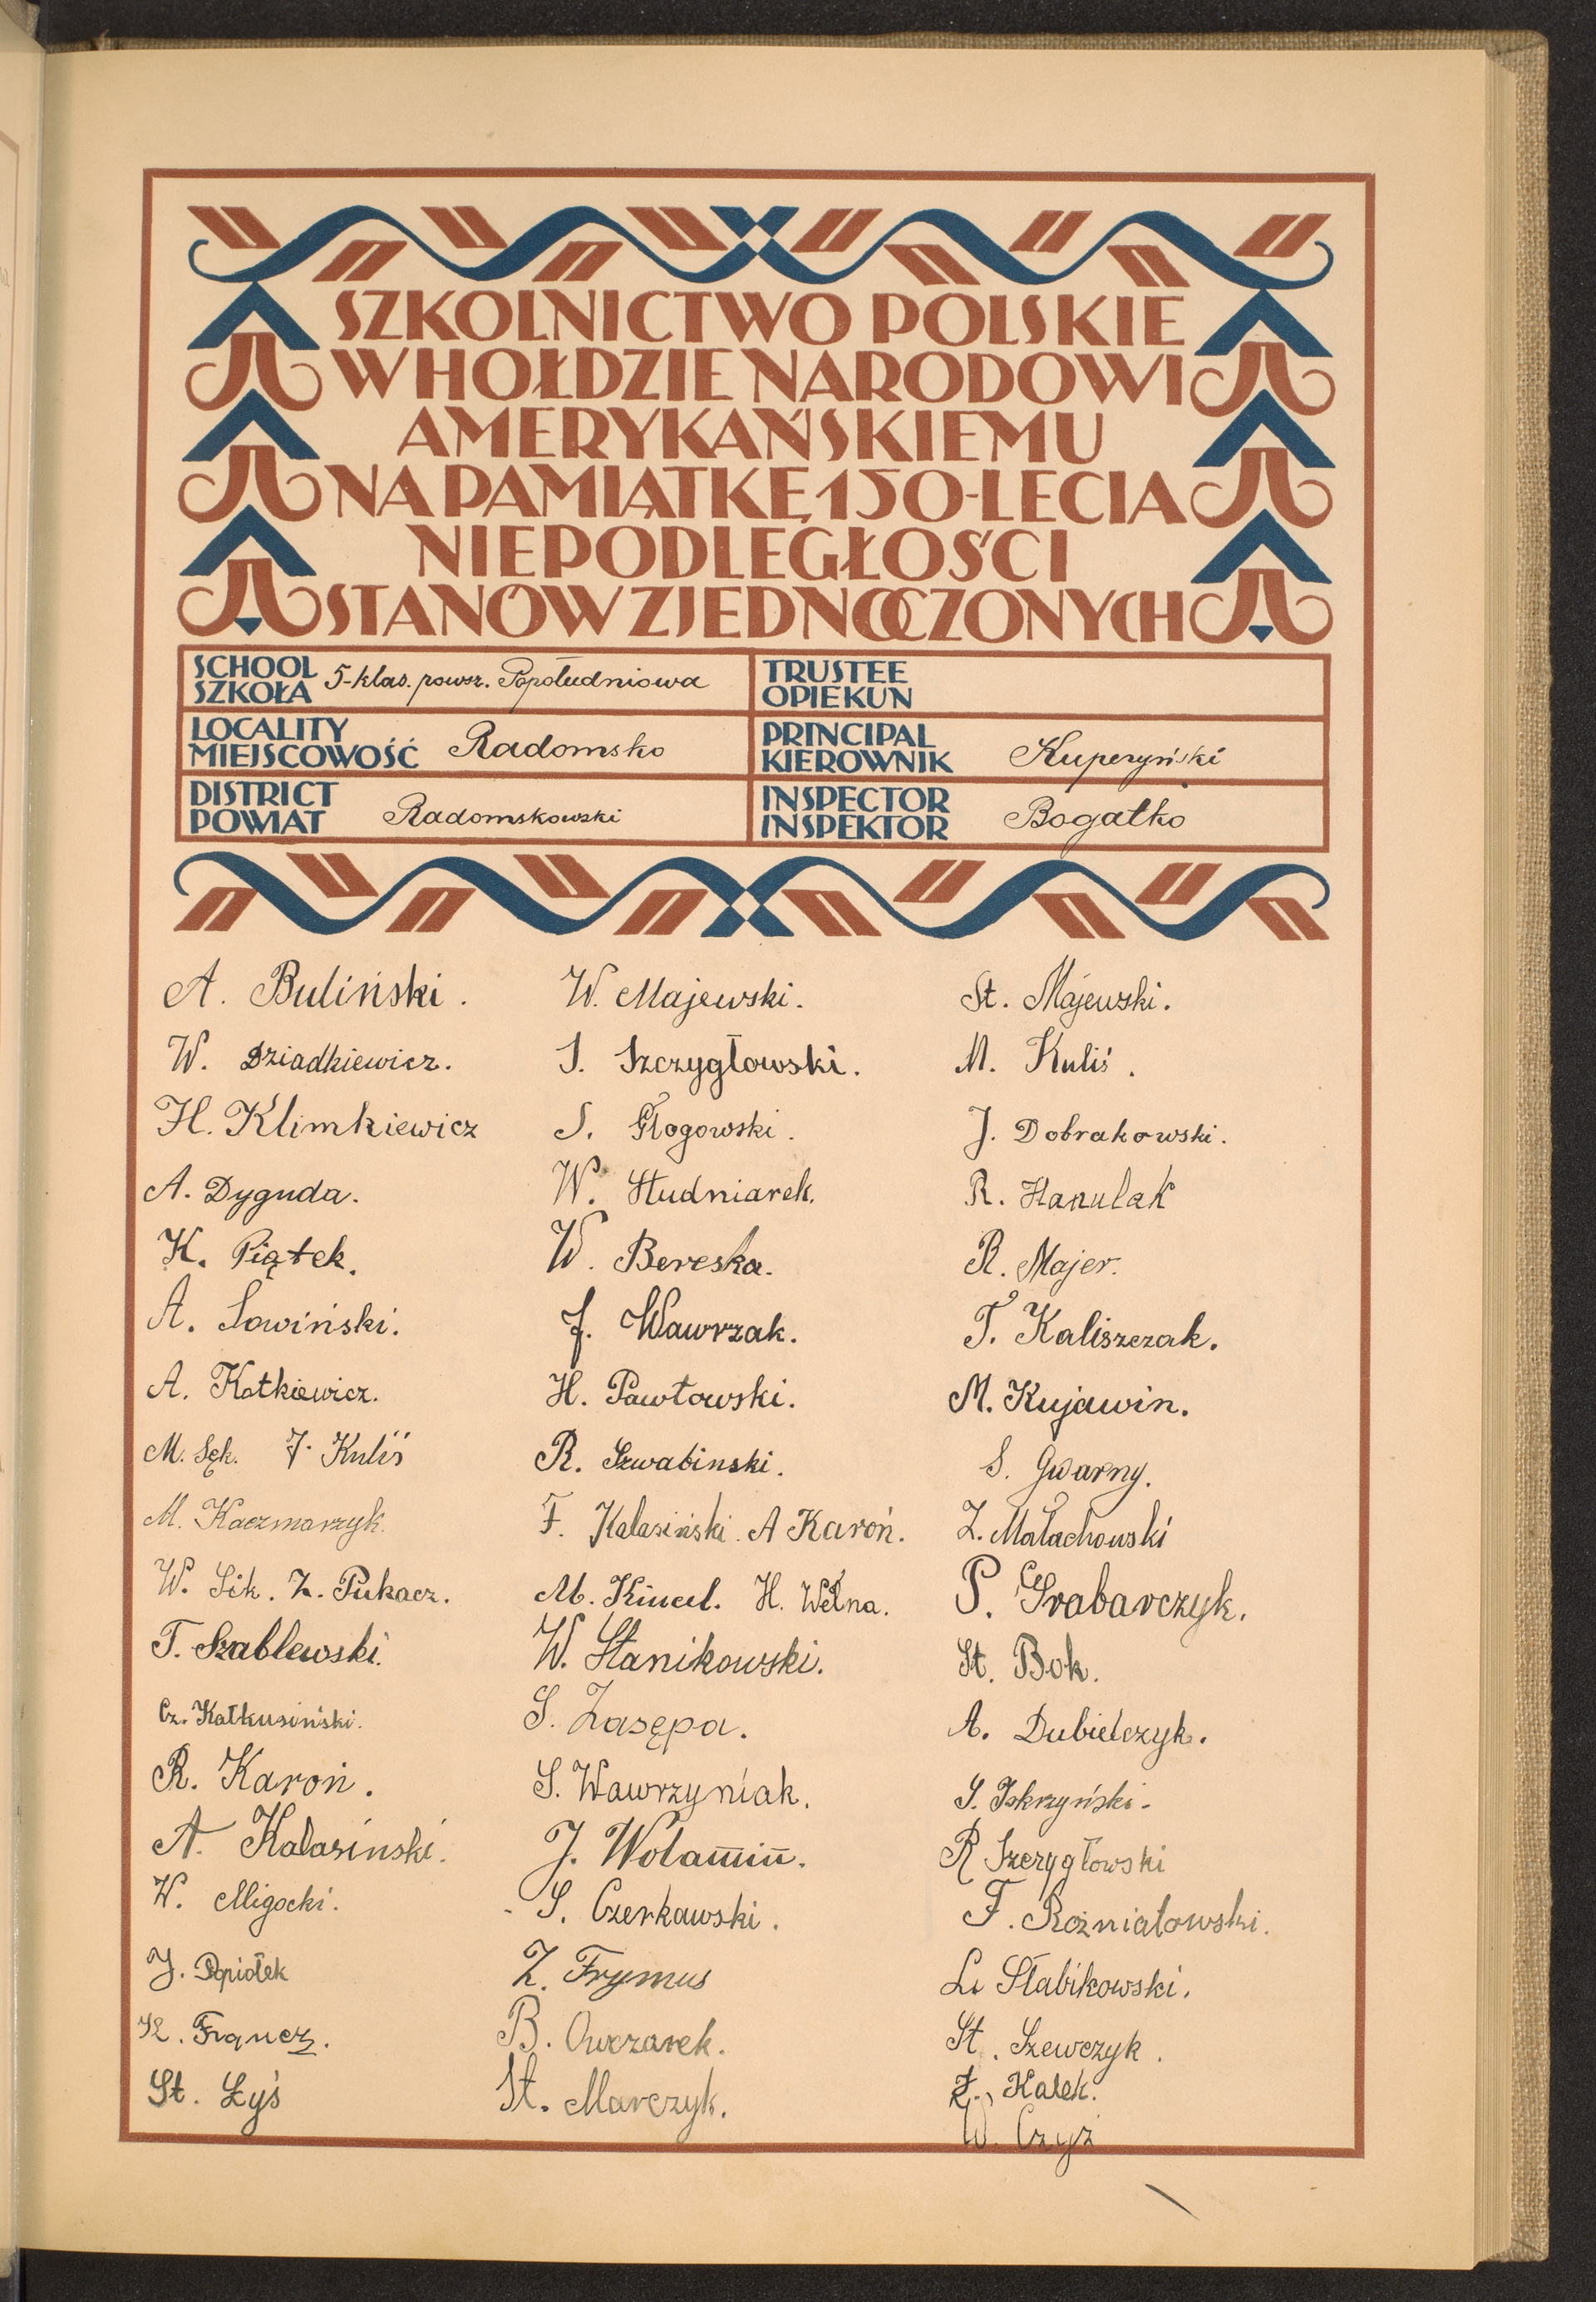 SZKOLNICTWO POLSKIE
W HOŁDZIE NARODOWI
AMERYKAŃSKIEMU
NA PAMIĄTKĘ 150-LECIA
NIEPODLEGŁOŚCI
STANÓW ZJEDNOCZONYCH
SCHOOL
SZKOŁA 5-klas. powsz. Popołudniowa
TRUSTEE
OPIEKUN
LOCALITY
MIEJSCOWOŚĆ Radomsko
PRINCIPAL
KIEROWNIK Kuperzyński
DISTRICT
POWIAT Radomskowski
INSPECTOR
INSPEKTOR Bogatko
A. Buliński.
W. Dziadkiewicz.
H. Klimkiewicz
A. Dyguda.
K. Piątek.
A. Sowiński.
A. Kotkiewicz.
M. Sęk. J. Kuliś
M. Kaczmarzyk.
W. Sik. Z. Pukacz.
T. Szablewski.
Cz. Kałkusiński.
R. Karoń.
A. Kalasinski.
W. Migocki.
J. Popiołek
K. Francz.
St. Łyś
W. Majewski.
S. Szczygłowski.
S. Głogowski.
W. Studniarek.
W. Bereska.
J. Wawrzak.
H. Pawłowski.
R. Szwabinski.
F. Kalasiński. A Karoń.
M. Kincel. H. Wełna.
W. Stanikowski.
S. Zasępa.
S. Wawrzyniak.
J. Wolannin.
S. Czerkawski.
Z. Frymus
B. Owczarek.
St. Marczyk.
St. Majewski.
M. Kuliś.
J. Dobrakowski.
R. Hanulak
R. Majer.
T. Kaliszczak.
M. Kujawin.
S. Gwarny.
Z. Małachowski
P. Grabarczyk.
St. Bok.
A. Dubielczyk.
S. Iskrzyński.
R Szczygłowski
F. Rożniatowski.
L. Słabikowski.
St. Szewczyk.
Z. Kałek.
W. Czyż